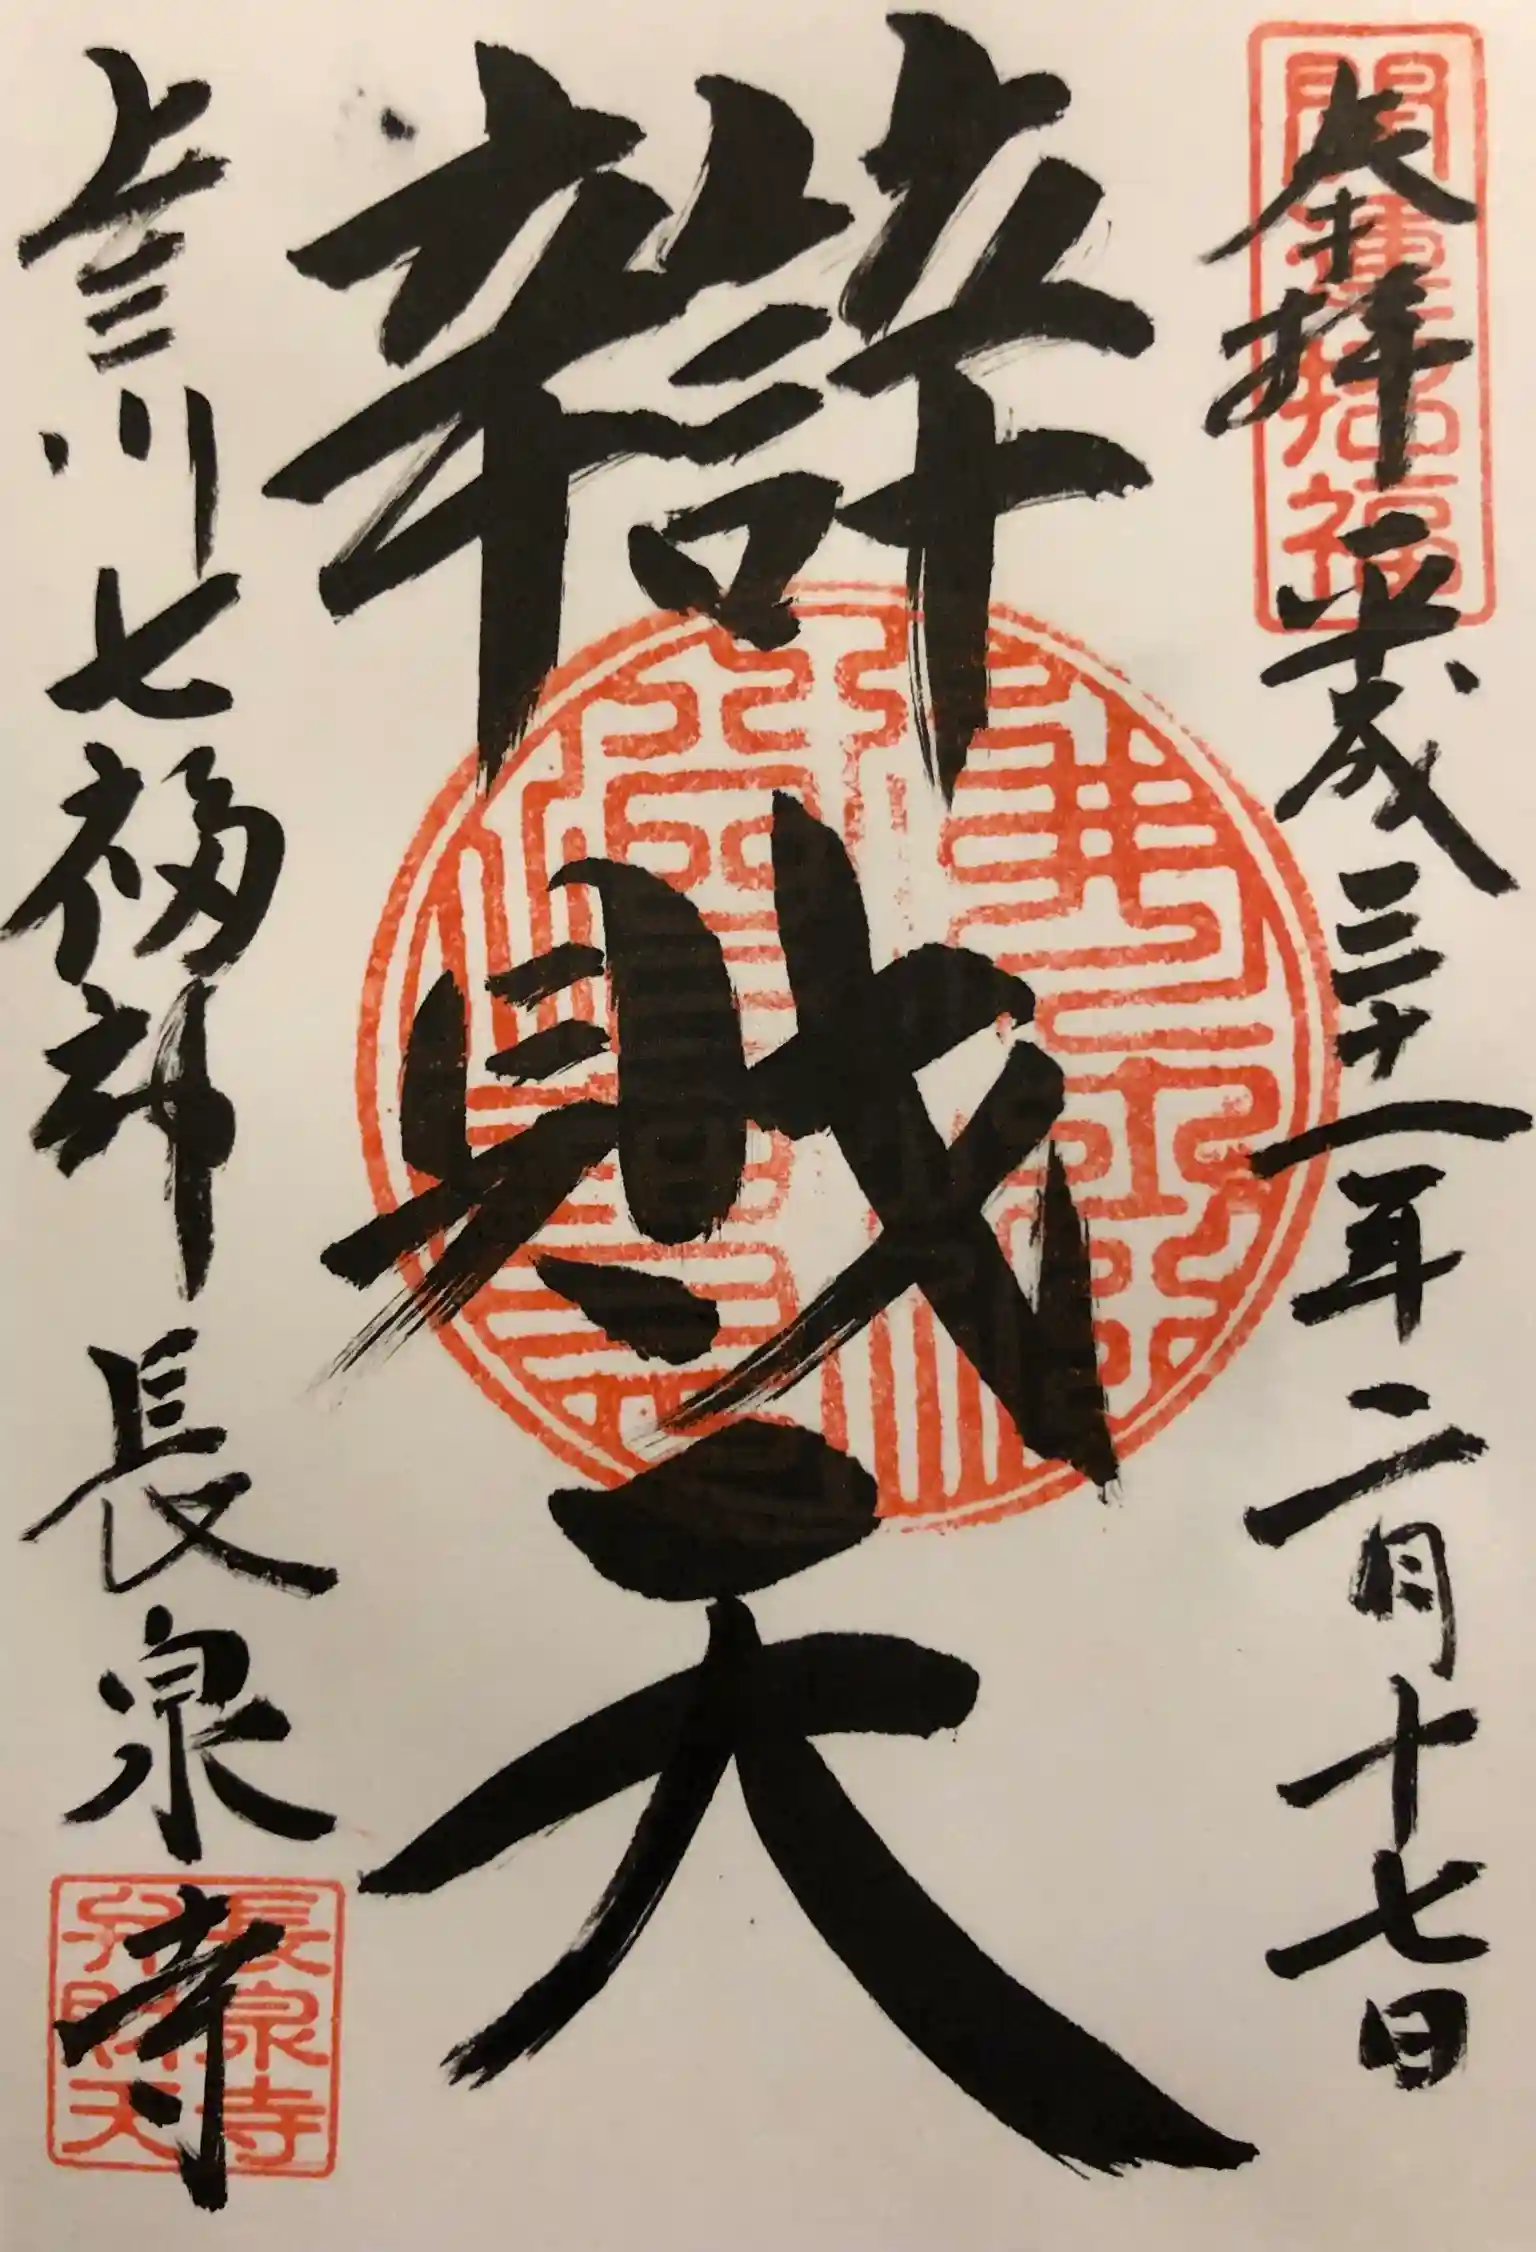 奉拝 平成三十一年二月十七日
開運招福
辯財天
上三川七福神 長泉寺
長泉寺
弁財天